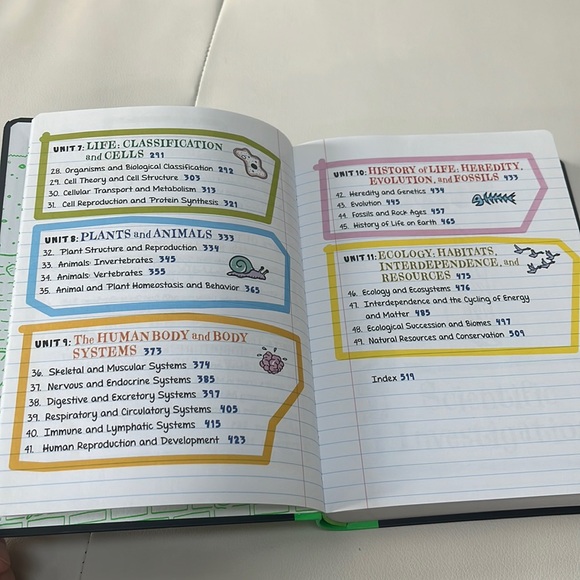 UNIT 7: LIFE: CLASSIFICATION
and CELLS 291
28. Organisms and Biological Classification 292
29. Cell Theory and Cell Structure 303
30. Cellular Transport and Metabolism 313
31. Cell Reproduction and Protein Synthesis 321
UNIT 8: PLANTS and ANIMALS 333
32. Plant Structure and Reproduction 334
33. Animals: Invertebrates 345
34. Animals: Vertebrates 355
35. Animal and Plant Homeostasis and Behavior 365
UNIT 9: The HUMAN BODY and BODY
SYSTEMS 373
36. Skeletal and Muscular Systems 374
37. Nervous and Endocrine Systems 385
38. Digestive and Excretory Systems 397
39. Respiratory and Circulatory Systems 405
40. Immune and Lymphatic Systems 415
41. Human Reproduction and Development 423
UNIT 10: HISTORY of LIFE: HEREDITY,
EVOLUTION, and FOSSILS 433
42. Heredity and Genetics 434
43. Evolution 445
44. Fossils and Rock Ages 457
45. History of Life on Earth 465
UNIT 11: ECOLOGY: HABITATS,
INTERDEPENDENCE, and
RESOURCES 475
46. Ecology and Ecosystems 476
47. Interdependence and the Cycling of Energy
and Matter 485
48. Ecological Succession and Biomes 497
49. Natural Resources and Conservation 509
Index 519